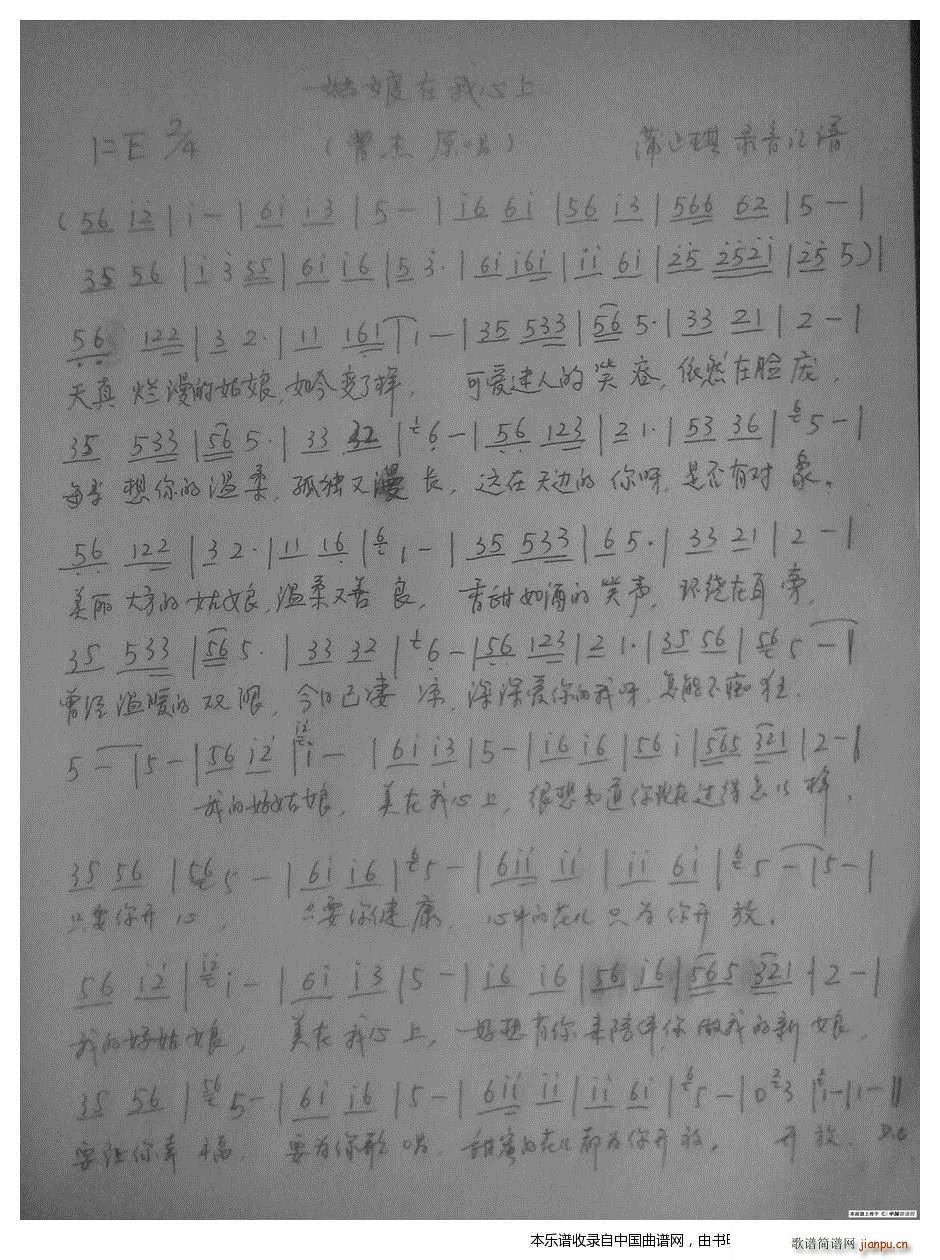 姑娘在我心上
1=E 2/4 (曾杰原唱) 录音记谱
(56 i2 | i - | 6i i3 | 5 - | i6 6i | 56 i3 | 566 62 | 5 - |
35 56 | i 3 55 | 6i i6 | 5 3· | 6i i6i | ii 6i | 25 252i | 25 5) |
56 122 | 3 2· | 11 161 | 1 - | 35 533 | 56 5· | 33 21 | 2 - |
天真 烂漫的姑娘,如今变了样, 可爱迷人的笑容,依然在脸庞,
35 533 | 56 5· | 33 32 | 1 6 - | 56 123 | 2 1· | 53 36 | 6 5 - |
想你的温柔,孤独又漫长,这在天边的你呀,是否有对象。
56 122 | 3 2· | 11 16 | 6 1 - | 35 533 | 6 5· | 33 21 | 2 - |
美丽大方的姑娘,温柔又善良, 香甜如酒的笑声,环绕在耳旁,
35 533 | 56 5· | 33 32 | 1 6 - | 56 123 | 2 1· | 35 56 | 56 5 - |
曾经温暖的双眼,今日已凄凉,深深爱你的我呀,怎能不痴狂.
5 - | 5 - | 56 i2 | i2 i - | 6i i3 | 5 - | i6 i6 | 56 i | 565 321 | 2 - |
我的好姑娘, 美在我心上,很想知道你现在过得怎么样,
35 56 | 56 5 - | 6i i6 | 6 5 - | 6ii ii | ii 6i | 6 5 - | 5 - |
只要你开心, 只要你健康, 心中的花儿只为你开放.
56 i2 | i2 i - | 6i i3 | 5 - | i6 i6 | 56 i6 | 565 321 | 2 - |
我的好姑娘, 美在我心上,好想有你来陪伴,你做我的新娘,
35 56 | 56 5 - | 6i i6 | 5 - | 6ii ii | ii 6i | 6 5 - | 0 2 3 | 2 i - | i - ||
要让你幸福, 要为你歌唱, 甜蜜的花儿都为你开放, 开放. D.C
本乐谱上传于 中国曲谱网
本乐谱收录自中国曲谱网,由书
歌谱简谱网
jianpu.cn